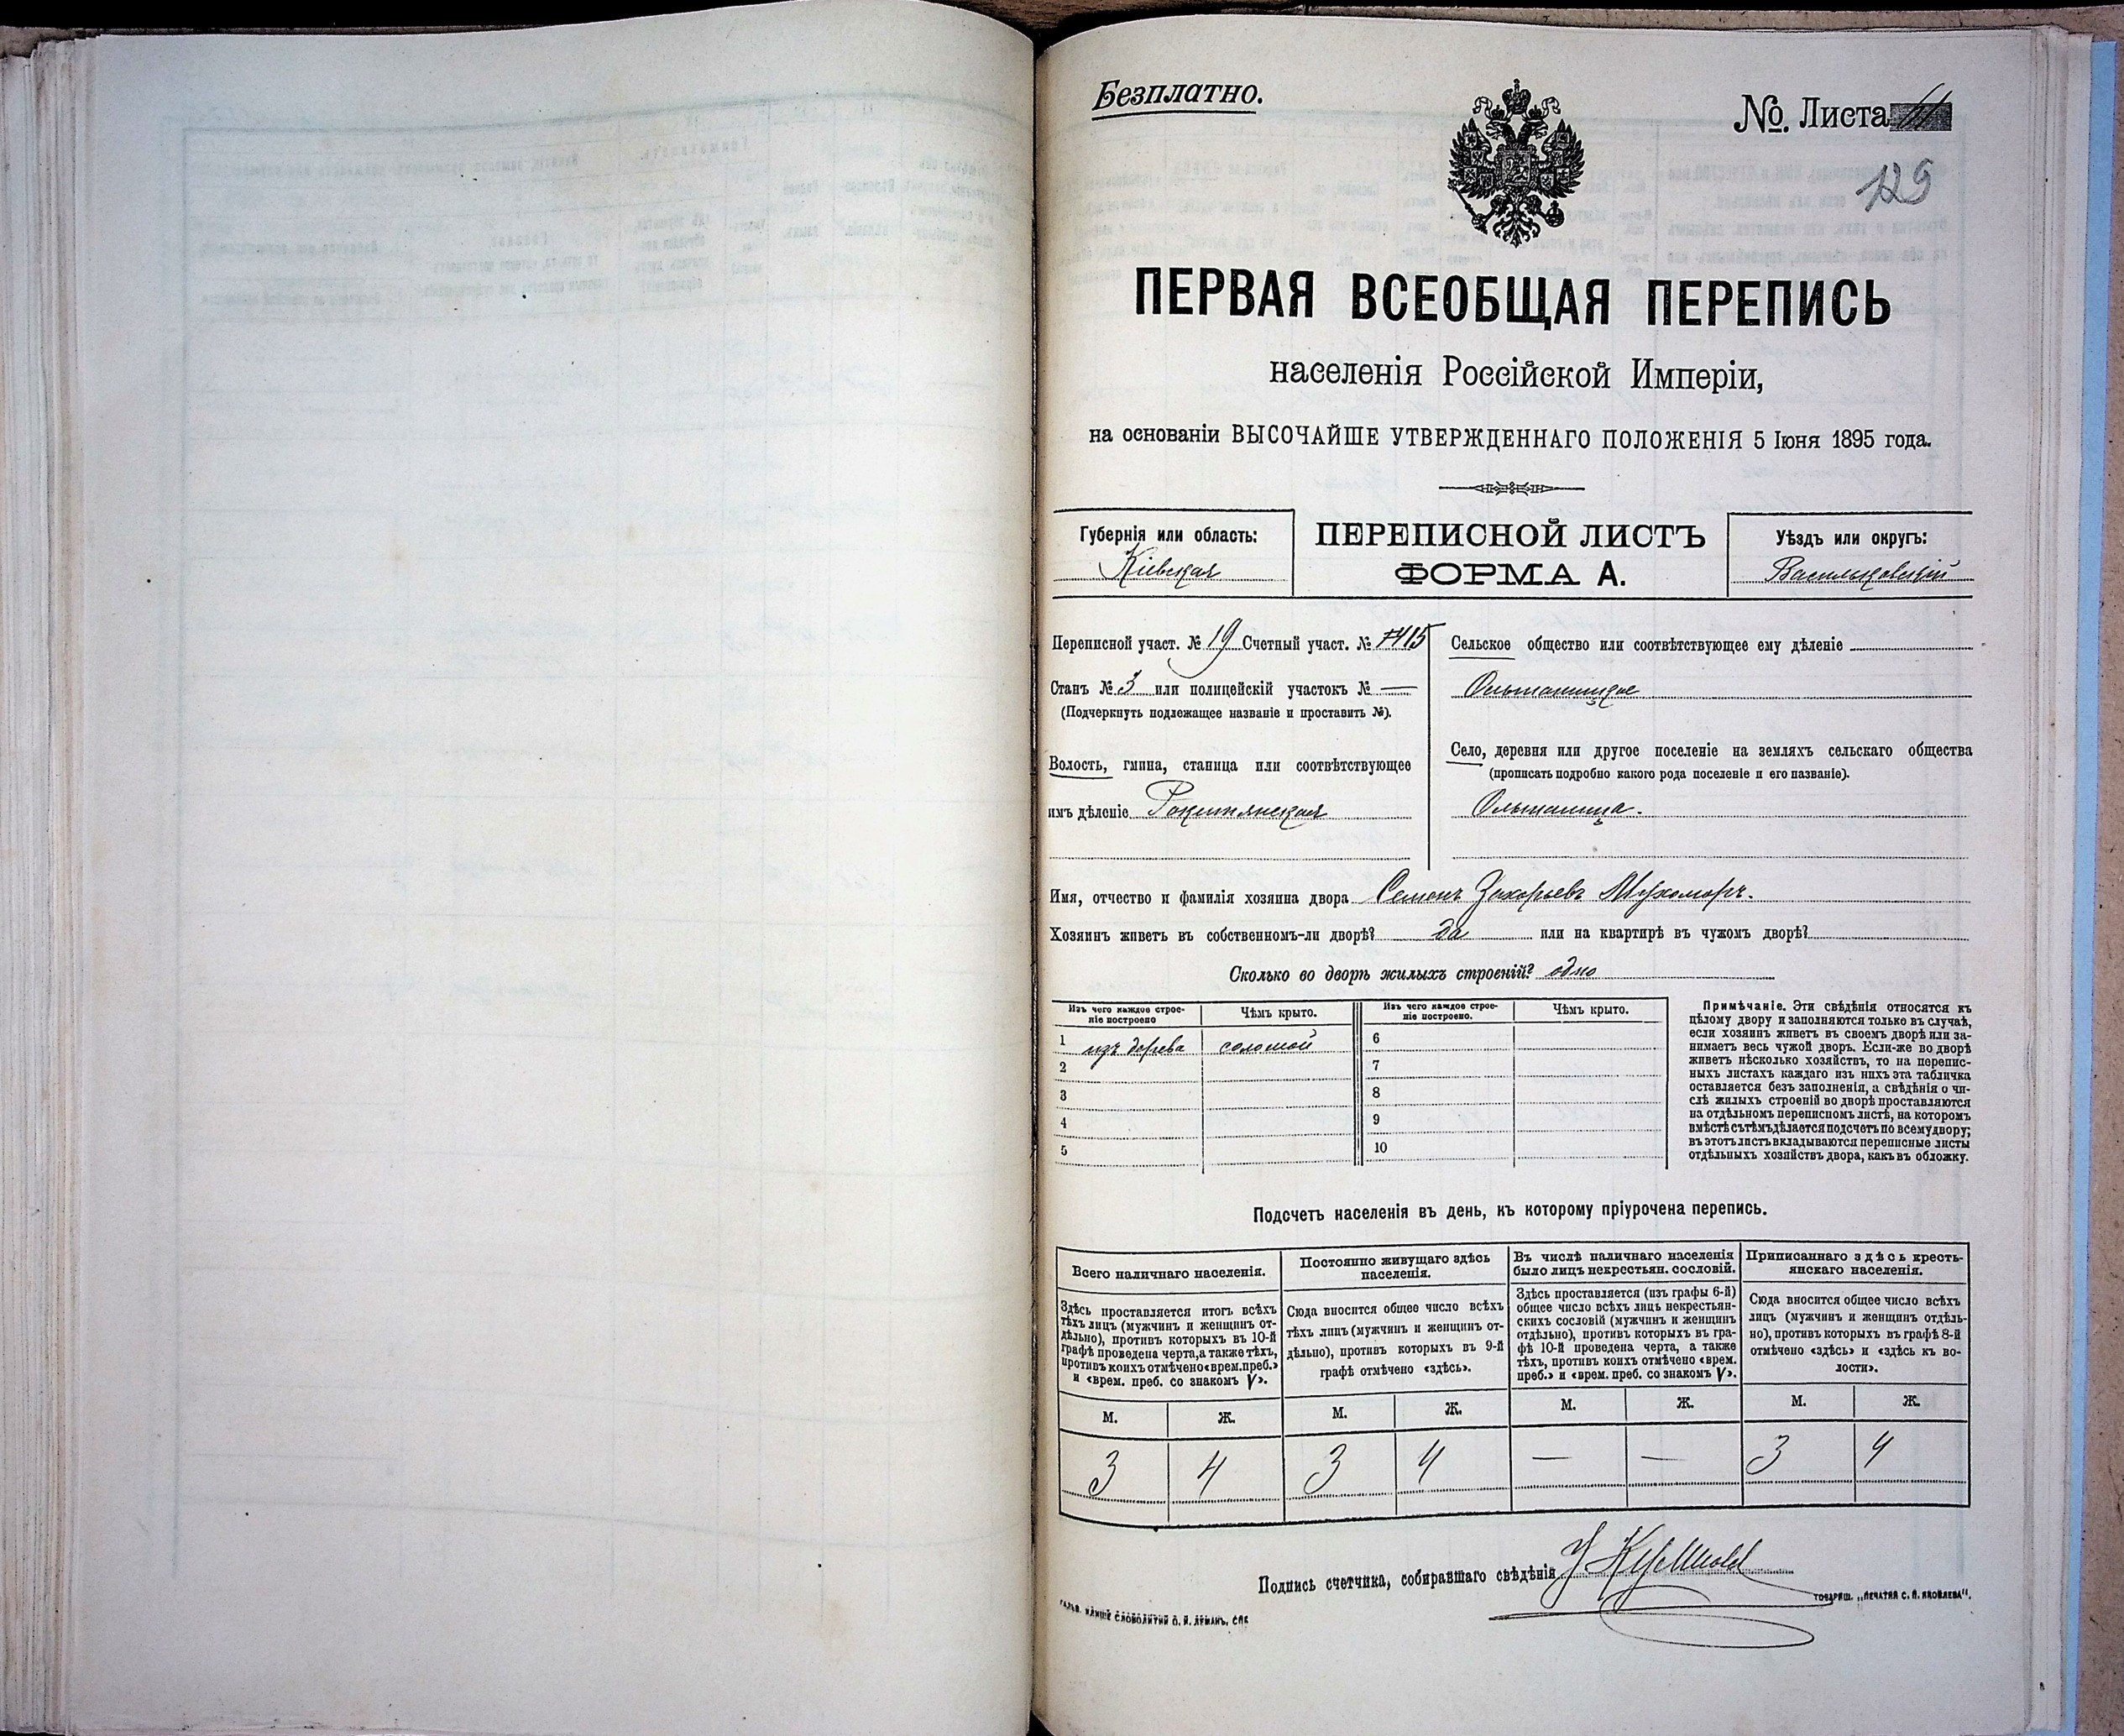 Безплатно.
№ Листа
129
ПЕРВАЯ ВСЕОБЩАЯ ПЕРЕПИСЬ
населенія Россійской Имперіи,
на основаніи ВЫСОЧАЙШЕ УТВЕРЖДЕННАГО ПОЛОЖЕНІЯ 5 Іюня 1895 года.
Губернія или область:
Кіевская
ПЕРЕПИСНОЙ ЛИСТЪ
ФОРМА А.
Уѣздъ или округъ:
Васильковскій
Переписной участ. № 19 Счетный участ. №
Станъ № 3 или полицейскій участокъ № —
(Подчеркнуть подлежащее названіе и проставить №).
Волость, гмина, станица или соотвѣтствующее
имъ дѣленіе Рокитянская
Сельское общество или соотвѣтствующее ему дѣленіе
Ольшаницкое
Село, деревня или другое поселеніе на земляхъ сельскаго общества
(прописать подробно какого рода поселеніе и его названіе).
Ольшаница.
Имя, отчество и фамилія хозяина двора Семенъ Захорьевъ Мухоморъ.
Хозяинъ живетъ въ собственномъ-ли дворѣ? да или на квартирѣ въ чужомъ дворѣ?
Сколько во дворѣ жилыхъ строеній? одно
Изъ чего каждое строе-
ніе построено
Чѣмъ крыто.
Изъ чего каждое строе-
ніе построено.
Чѣмъ крыто.
1 изъ дерева соломой 6
2 7
3 8
4 9
5 10
Примѣчаніе. Эти свѣдѣнія относятся къ
цѣлому двору и заполняются только въ случаѣ,
если хозяинъ живетъ въ своемъ дворѣ или за-
нимаетъ весь чужой дворъ. Если-же во дворѣ
живетъ нѣсколько хозяйствъ, то на перепис-
ныхъ листахъ каждаго изъ нихъ эта табличка
оставляется безъ заполненія, а свѣдѣнія о чи-
слѣ жилыхъ строеній во дворѣ проставляются
на отдѣльномъ переписномъ листѣ, на которомъ
вмѣстѣ съ тѣмъ дѣлается подсчетъ по всему двору;
въ этотъ листъ вкладываются переписные листы
отдѣльныхъ хозяйствъ двора, какъ въ обложку.
Подсчетъ населенія въ день, къ которому пріурочена перепись.
Всего наличнаго населенія.
Здѣсь проставляется итогъ всѣхъ
тѣхъ лицъ (мужчинъ и женщинъ от-
дѣльно), противъ которыхъ въ 10-й
графѣ проведена черта, а также тѣхъ,
противъ коихъ отмѣчено «врем. преб.»
и «врем. преб. со знакомъ V».
Постоянно живущаго здѣсь
населенія.
Сюда вносится общее число всѣхъ
тѣхъ лицъ (мужчинъ и женщинъ от-
дѣльно), противъ которыхъ въ 9-й
графѣ отмѣчено «здѣсь».
Въ числѣ наличнаго населенія
было лицъ некрестьян. сословій.
Здѣсь проставляется (изъ графы 6-й)
общее число всѣхъ лицъ некрестьян-
скихъ сословій (мужчинъ и женщинъ
отдѣльно), противъ которыхъ въ гра-
фѣ 10-й проведена черта, а также
тѣхъ, противъ коихъ отмѣчено «врем.
преб.» и «врем. преб. со знакомъ V».
Приписаннаго здѣсь кресть-
янскаго населенія.
Сюда вносится общее число всѣхъ
лицъ (мужчинъ и женщинъ отдѣль-
но), противъ которыхъ въ графѣ 8-й
отмѣчено «здѣсь» и «здѣсь къ во-
лости».
М. Ж. М. Ж. М. Ж. М. Ж.
3 4 3 4 — — 3 4
Подпись счетчика, собиравшаго свѣдѣнія
ТОВАРИЩ. „ПЕЧАТНЯ С. П. ЯКОВЛЕВА".
КЛИШЕ СЛОВОЛИТНИ О. И. ЛЕМАНЪ, СПБ